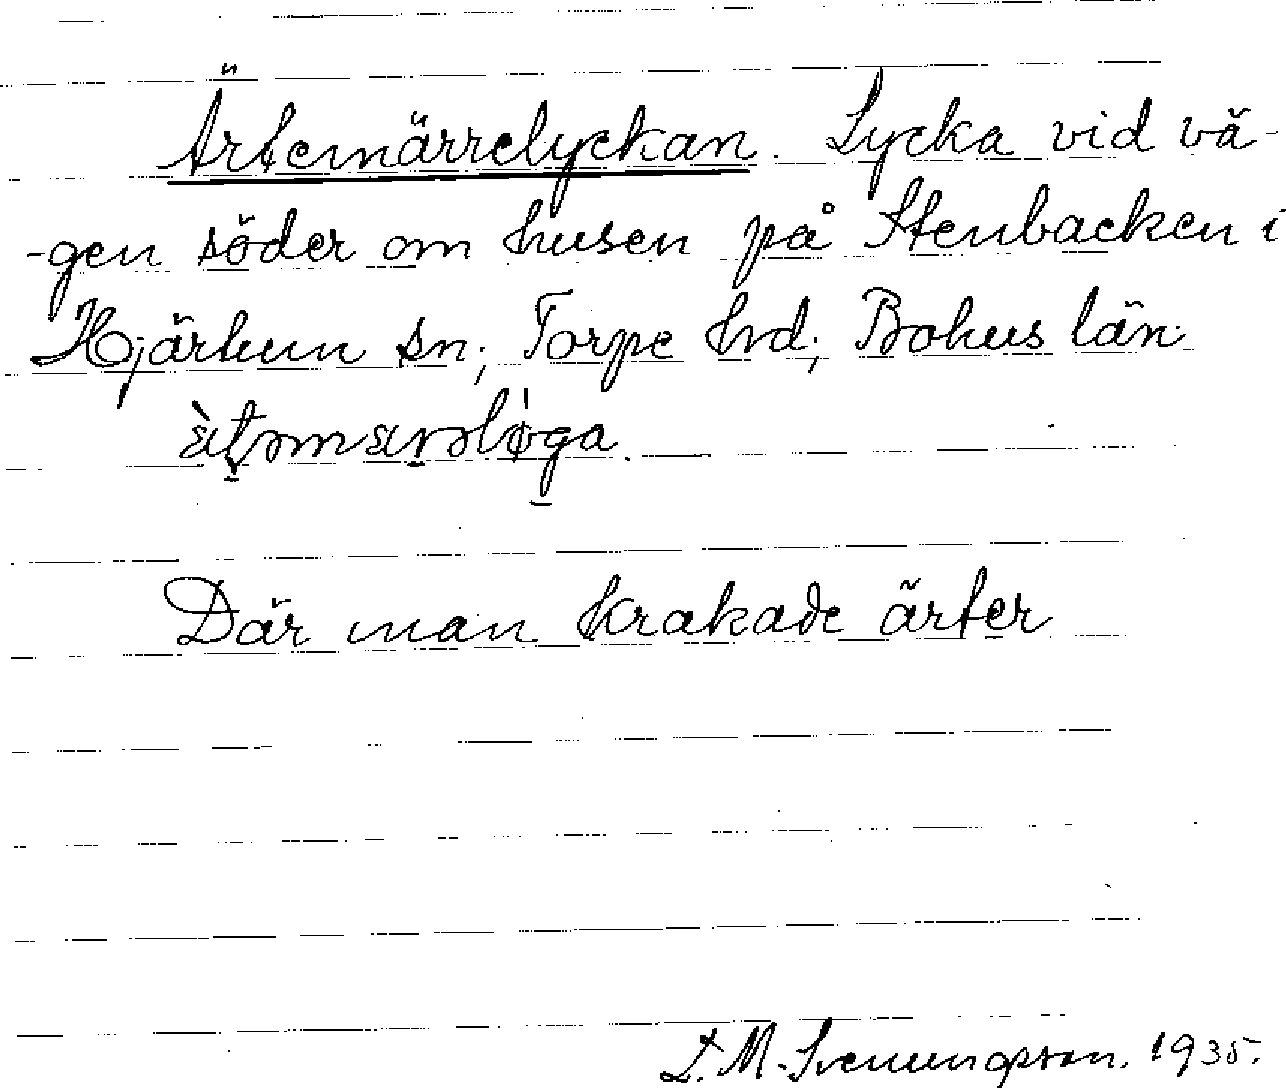 Ärtemärrelyckan. Lycka vid vä-
-gen söder om husen på Stenbacken i
Hjärtum sn; Torpe hrd; Bohus län
Där man krakade ärter
M. Svenungsson. 1935.